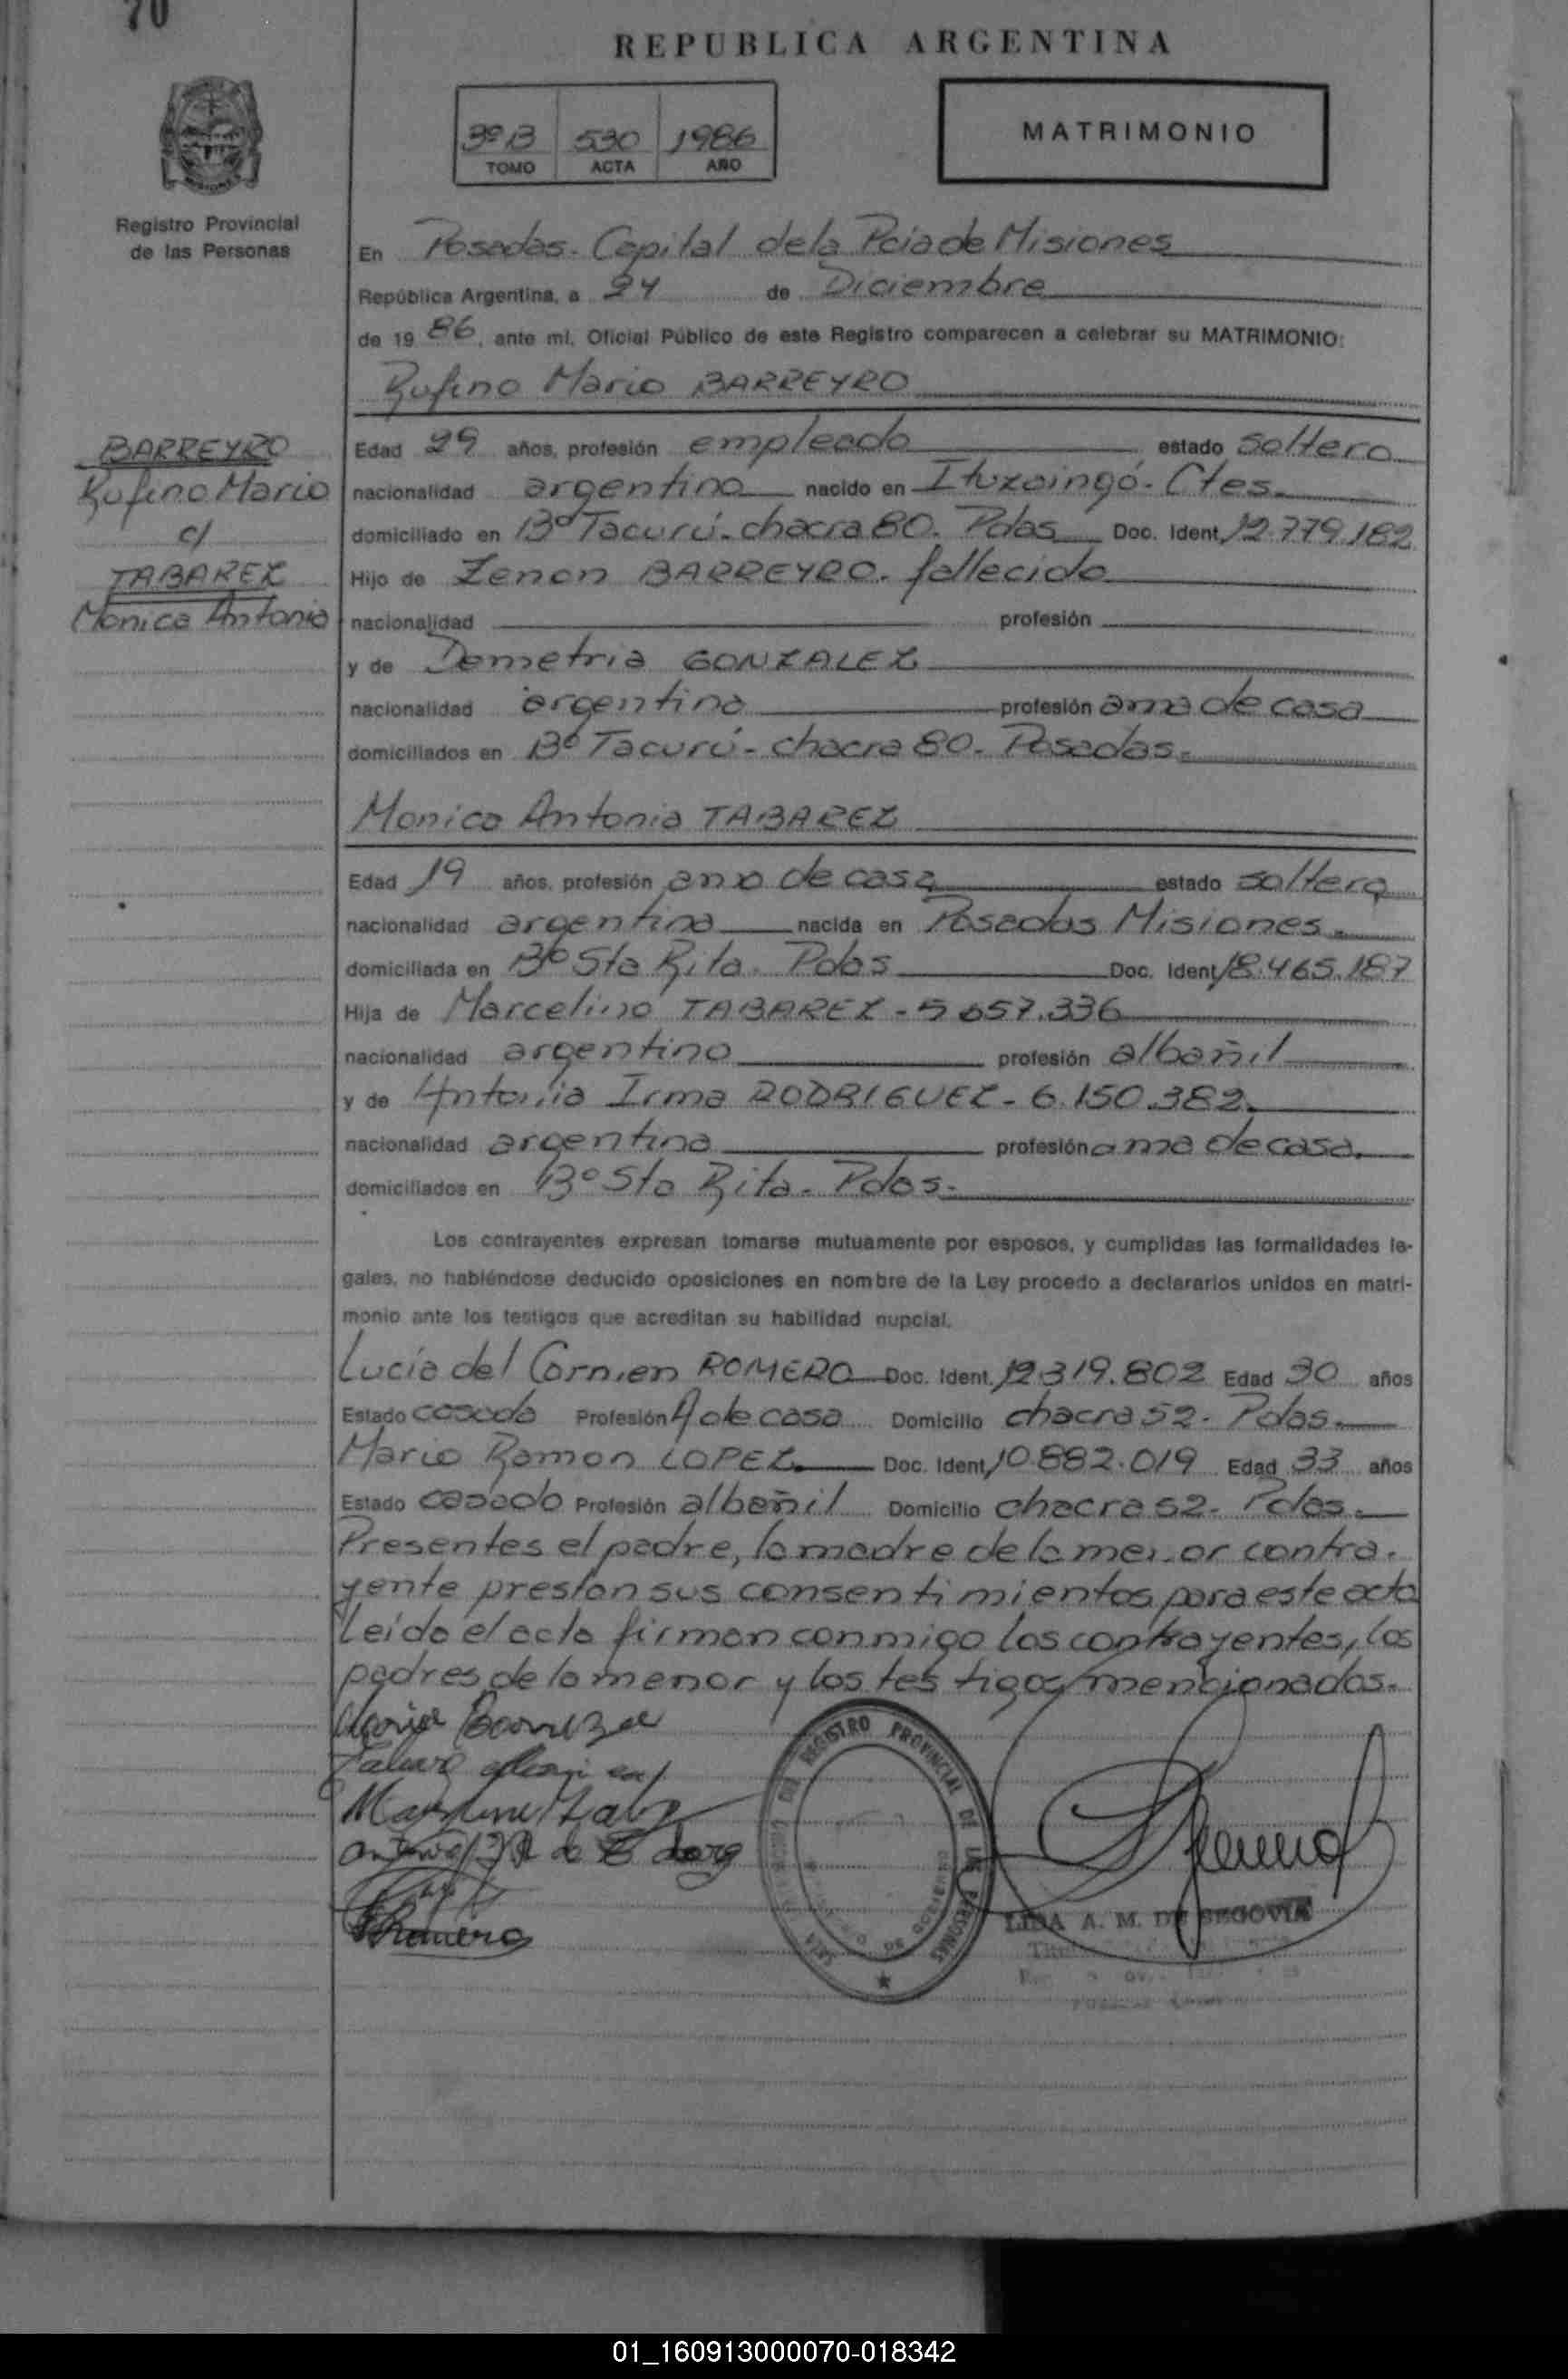 70
REPUBLICA ARGENTINA
3º B 530 1986
TOMO ACTA AÑO
MATRIMONIO
MISIONES
Registro Provincial
de las Personas
En Posadas. Capital de la Pcia de Misiones
República Argentina, a 24 de Diciembre
de 19 86, ante mi, Oficial Público de este Registro comparecen a celebrar su MATRIMONIO:
Rufino Mario BARREYRO
BARREYRO
Rufino Mario
c/
TABAREZ
Monica Antonia
Edad 29 años, profesión empleado estado soltero
nacionalidad argentino nacido en Ituzaingó. Ctes.
domiciliado en Bº Tacurú. chacra 80. Pdas Doc. Ident. 12.779.182
Hijo de Zenon BARREYRO. fallecido
nacionalidad profesión
y de Demetria GONZALEZ
nacionalidad argentina profesión ama de casa
domiciliados en Bº Tacurú - chacra 80. Posadas.
Monica Antonia TABAREZ
Edad 19 años, profesión ama de casa estado soltera
nacionalidad argentina nacida en Posadas Misiones.
domiciliada en Bº Sta Rita. Pdas Doc. Ident. 18.465.187
Hija de Marcelino TABAREZ - 5.657.336
nacionalidad argentino profesión albañil
y de Antonia Irma RODRIGUEZ - 6.150.382.
nacionalidad argentina profesión ama de casa.
domiciliados en Bº Sta Rita. Pdas.
Los contrayentes expresan tomarse mutuamente por esposos, y cumplidas las formalidades le-
gales, no habiéndose deducido oposiciones en nombre de la Ley procedo a declararlos unidos en matri-
monio ante los testigos que acreditan su habilidad nupcial.
Lucia del Carmen ROMERO Doc. Ident. 12.319.802 Edad 30 años
Estado casada Profesión A de casa Domicilio chacra 52. Pdas.
Mario Ramon LOPEZ. Doc. Ident. 10.882.019 Edad 33 años
Estado casado Profesión albañil Domicilio chacra 52. Pdas.
Presentes el padre, la madre de la menor contra.
yente prestan sus consentimientos para este acto
Leida el acta firman conmigo los contrayentes, los
padres de la menor y los testigos mencionados.
REGISTRO PROVINCIAL DE LAS PERSONAS
Romero
LIDA A. M. DE SEGOVIA
01_160913000070-018342